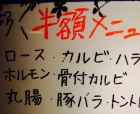 半額メニュ
ロース・カルビ・ハラ
ホルモン・骨付カルビ
丸腸・豚バラ・トント